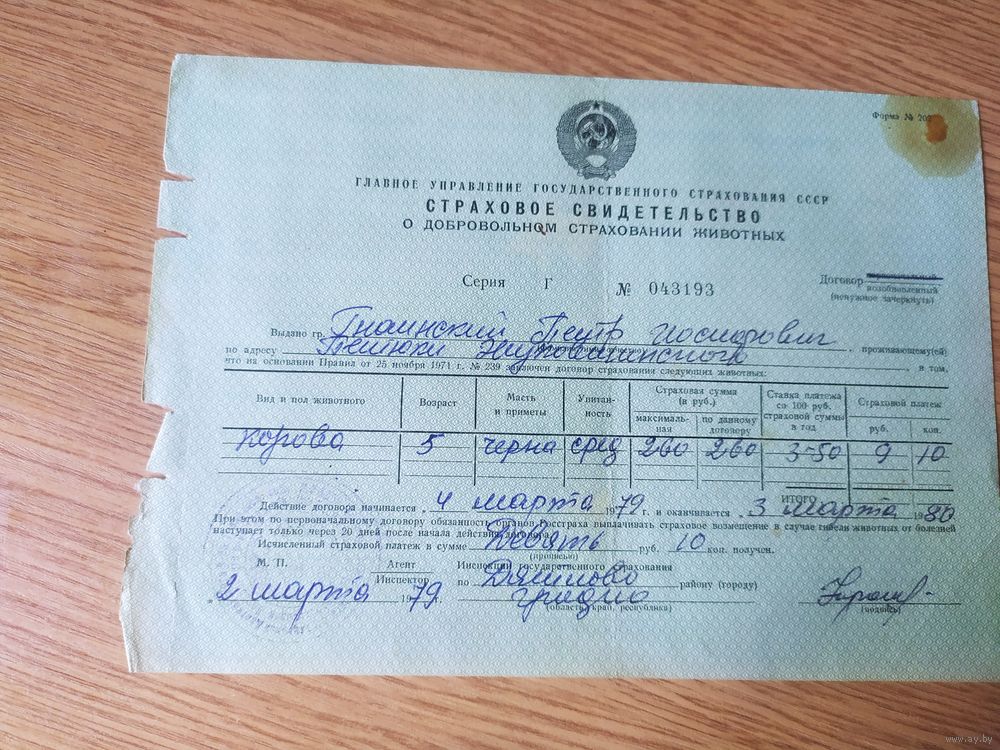 Форма № 202
ГЛАВНОЕ УПРАВЛЕНИЕ ГОСУДАРСТВЕННОГО СТРАХОВАНИЯ СССР
СТРАХОВОЕ СВИДЕТЕЛЬСТВО
О ДОБРОВОЛЬНОМ СТРАХОВАНИИ ЖИВОТНЫХ
Серия Г № 043193 Договор
возобновленный
(ненужное зачеркнуть)
Выдано гр. Петр Иосифович
по адресу проживающему(ей) в том,
что на основании Правил от 25 ноября 1971 г. № 239 заключен договор страхования следующих животных:
Вид и пол животного Возраст Масть и приметы Упитанность Страховая сумма (в руб.) максимальная по данному договору Ставка платежа со 100 руб. страховой суммы в год Страховой платеж руб. коп.
корова 5 черна сред 260 260 3-50 9 10
ИТОГО
Действие договора начинается 4 марта 1979 г. и оканчивается 3 марта 1980
При этом по первоначальному договору обязанность органов Госстраха выплачивать страховое возмещение в случае гибели животного от болезней
наступает только через 20 дней после начала действия договора.
Исчисленный страховой платеж в сумме Девять руб. 10 коп. получен.
(прописью)
М. П. Агент Инспекции государственного страхования
Инспектор по району (городу)
2 марта 1979 Гродно
(область, край, республика) (подпись)
www.ay.by